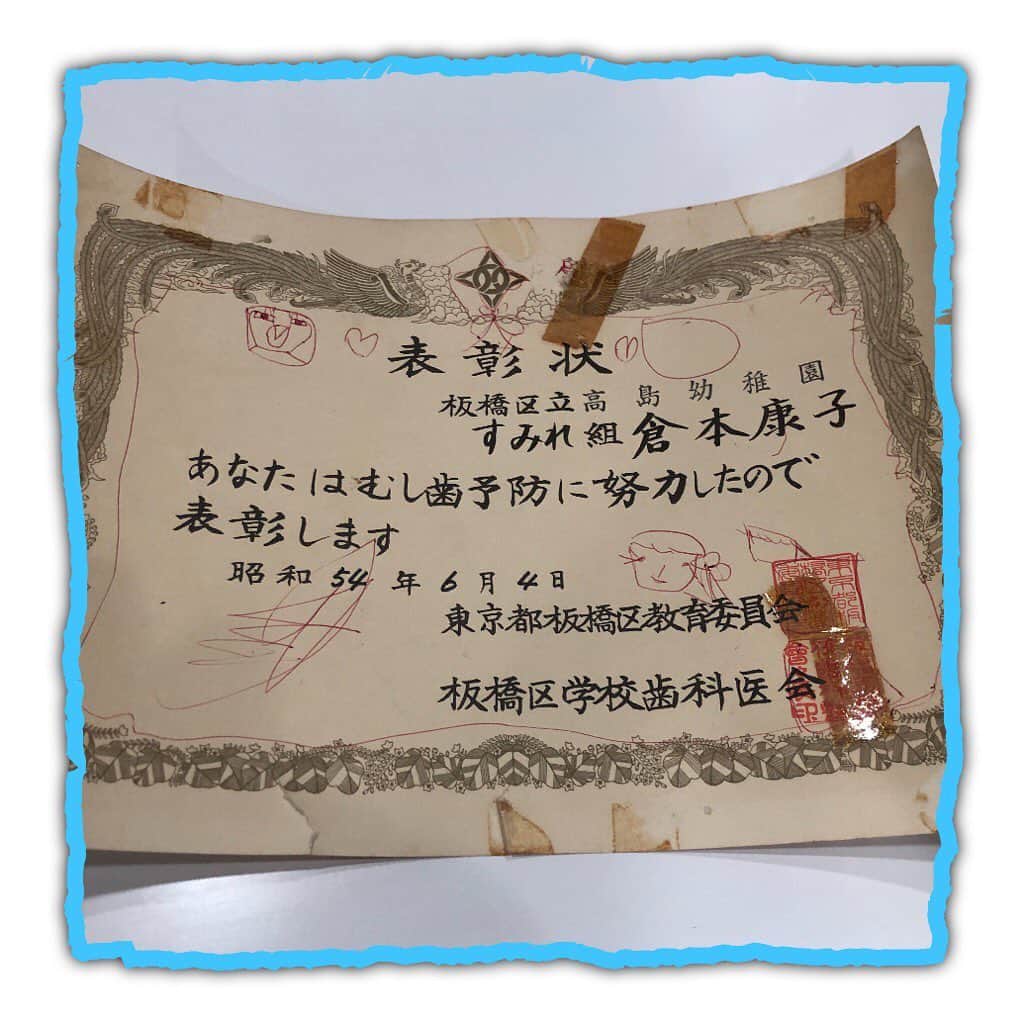 表彰状
板橋区立高島幼稚園
すみれ組 倉本康子
あなたはむし歯予防に努力したので
表彰します
昭和54年6月4日
東京都板橋区教育委員会
板橋区学校歯科医会